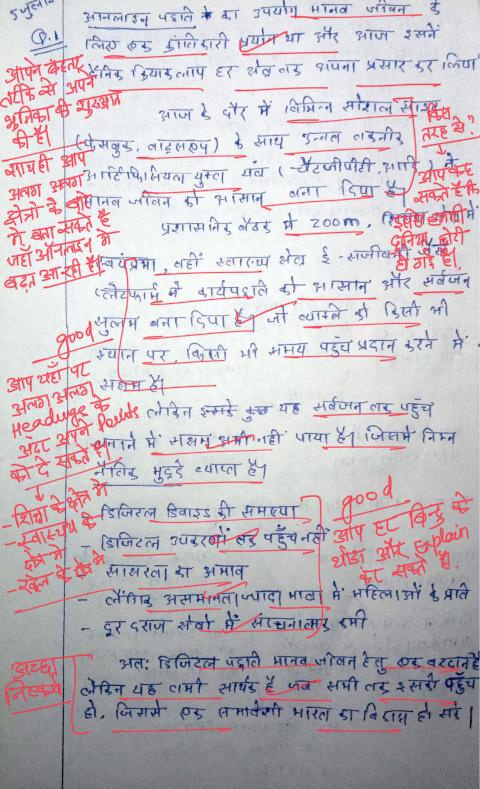 5 जुला
Q.1
ऑनलाइन पद्धति का उपयोग मानव जीवन के
लिए एक क्रांतिकारी प्रयोग था और आज इसने
दैनिक क्रियाकलाप हर क्षेत्र तक अपना प्रसार कर लिया
आज के दौर में विभिन्न सोशल साइट
(फेसबुक, वाट्सएप) के साथ उन्नत तकनीक
आर्टिफिशियल युक्त यंत्र (चैटजीपीटी, आदि) ने
मानव जीवन को आसान बना दिया है।
प्रशासनिक बैठक में zoom, शिक्षा में
स्वयंप्रभा, वहीं स्वास्थ्य क्षेत्र ई-संजीवनी जैसे
प्लेटफार्म ने कार्यपद्धति को आसान और सर्वजन
सुलभ बना दिया है। जो व्यक्ति को किसी भी
स्थान पर, किसी भी समय पहुँच प्रदान करने में
सक्षम है।
लेकिन इसके यह सर्वजन तक पहुँच
बनाने में सक्षम अभी नहीं पाया है। जिसमें निम्न
नैतिक मुद्दे व्याप्त है।
- डिजिटल डिवाइड की समस्या
- डिजिटल उपकरणों तक पहुँच नहीं
- साक्षरता का अभाव
- लैंगिक असमानता ज्यादा मात्रा में महिलाओं के प्रति
- दूर दराज क्षेत्रों में संरचनात्मक कमी
अतः डिजिटल पद्धति मानव जीवन हेतु एक वरदान है
लेकिन यह तभी सार्थक है जब सभी तक इसकी पहुँच
हो, जिससे एक समावेशी भारत का विकास हो सके।
आपने बेहतर
तरीके से अपने
भूमिका की शुरुआत
की है।
साथ ही आप
अलग अलग
क्षेत्रों के बारे
में बता सकते हैं
जहाँ ऑनलाइन में
बढ़त आ रही है।
किस
तरह से?
आप कह
सकते हैं कि
दुनिया छोटी
हो गई है।
good
आप यहाँ पर
अलग अलग
Headings के
अंदर अपने Points
को दे सकते हैं।
- शिक्षा के क्षेत्र में
- स्वास्थ्य के
क्षेत्र में
- खेल के क्षेत्र में
good
आप हर बिन्दु को
थोडा और explain
कर सकते हैं।
अच्छा
निष्कर्ष